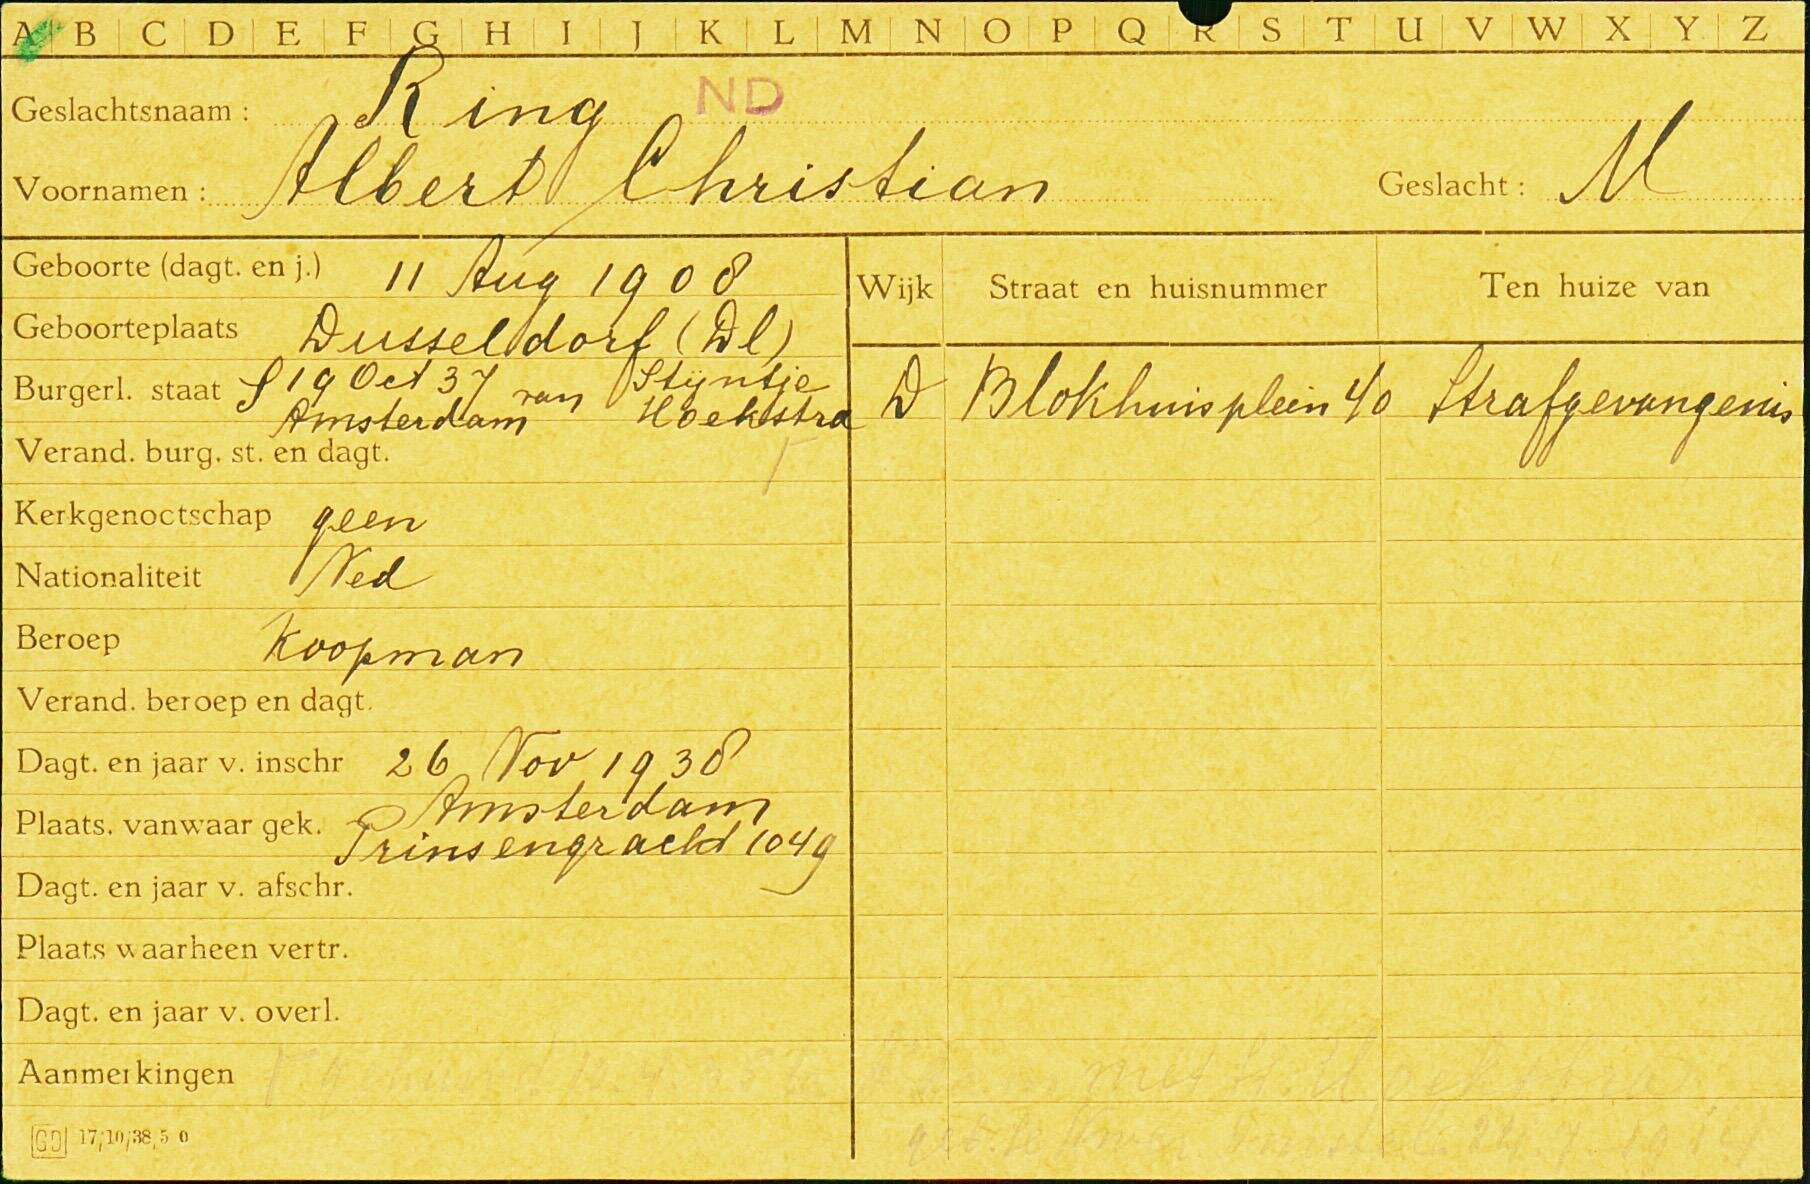 A B C D E F G H I J K L M N O P Q R S T U V W X Y Z
Geslachtsnaam: Ring ND
Voornamen: Albert Christian Geslacht: M
Geboorte (dagt. en j.) 11 Aug 1908
Geboorteplaats Dusseldorf (Dl)
Burgerl. staat S 19 Oct 37 van Stijntje
Amsterdam Hoekstra
Verand. burg. st. en dagt.
Kerkgenootschap geen
Nationaliteit Ned
Beroep Koopman
Verand. beroep en dagt.
Dagt. en jaar v. inschr 26 Nov 1938
Plaats. vanwaar gek. Amsterdam
Prinsengracht 1049
Dagt. en jaar v. afschr.
Plaats waarheen vertr.
Dagt. en jaar v. overl.
Aanmerkingen
met Hoekstra
GD 17/10/38, 5 0
Wijk Straat en huisnummer Ten huize van
D Blokhuisplein 40 Strafgevangenis